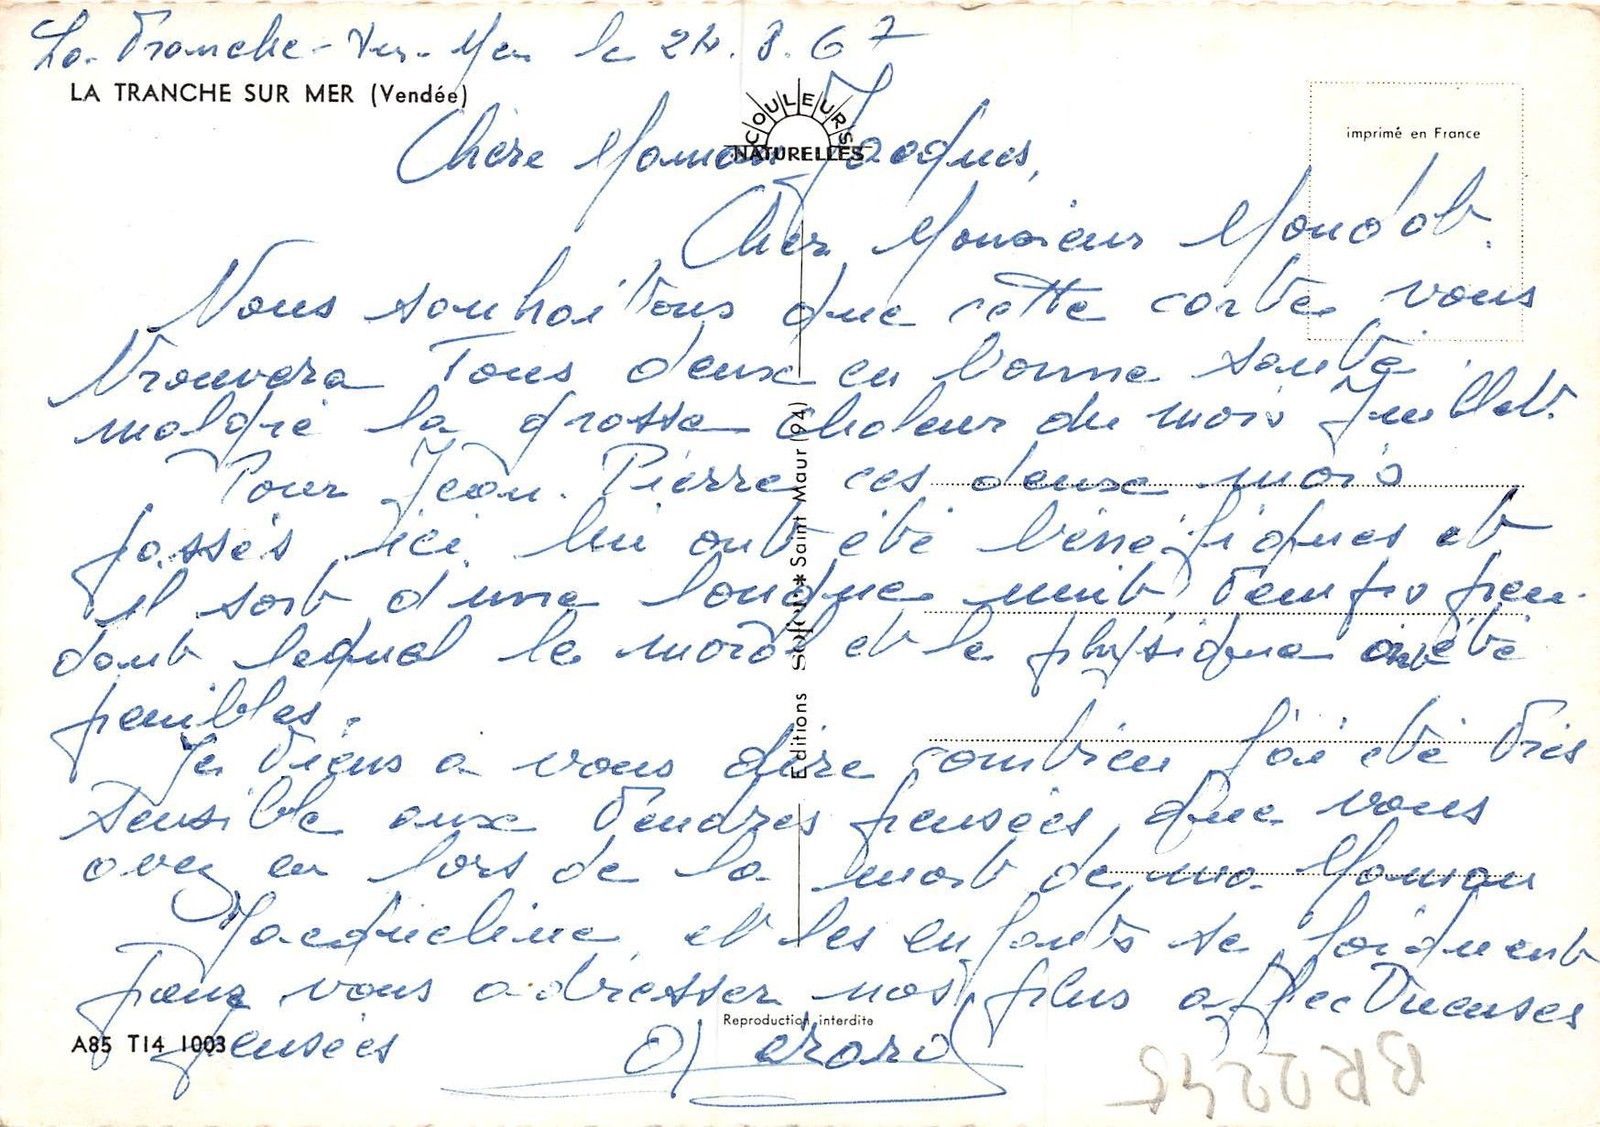 La Tranche-sur-Mer le 24.8.67
LA TRANCHE SUR MER (Vendée)
COULEURS
NATURELLES
imprimé en France
Chère Maman Jacques,
Cher Monsieur
Nous souhaitons que cette carte vous
trouvera tous deux en bonne santé
malgré la grosse chaleur du mois Juillet.
Pour Jean-Pierre ces deux mois
passés ici lui ont été bénéfiques et
il sort d'une longue nuit, temps pen-
dant lequel le moral et le physique ont été
penibles.
Je viens à vous dire combien j'ai été très
sensible aux tendres pensées que vous
avez eu lors de la mort de ma Maman
Jacqueline et les enfants se joignent
pour vous adresser nos plus affectueuses
pensées
Editions
* Saint Maur (94)
Reproduction interdite
A85 T14 1003
BR2245